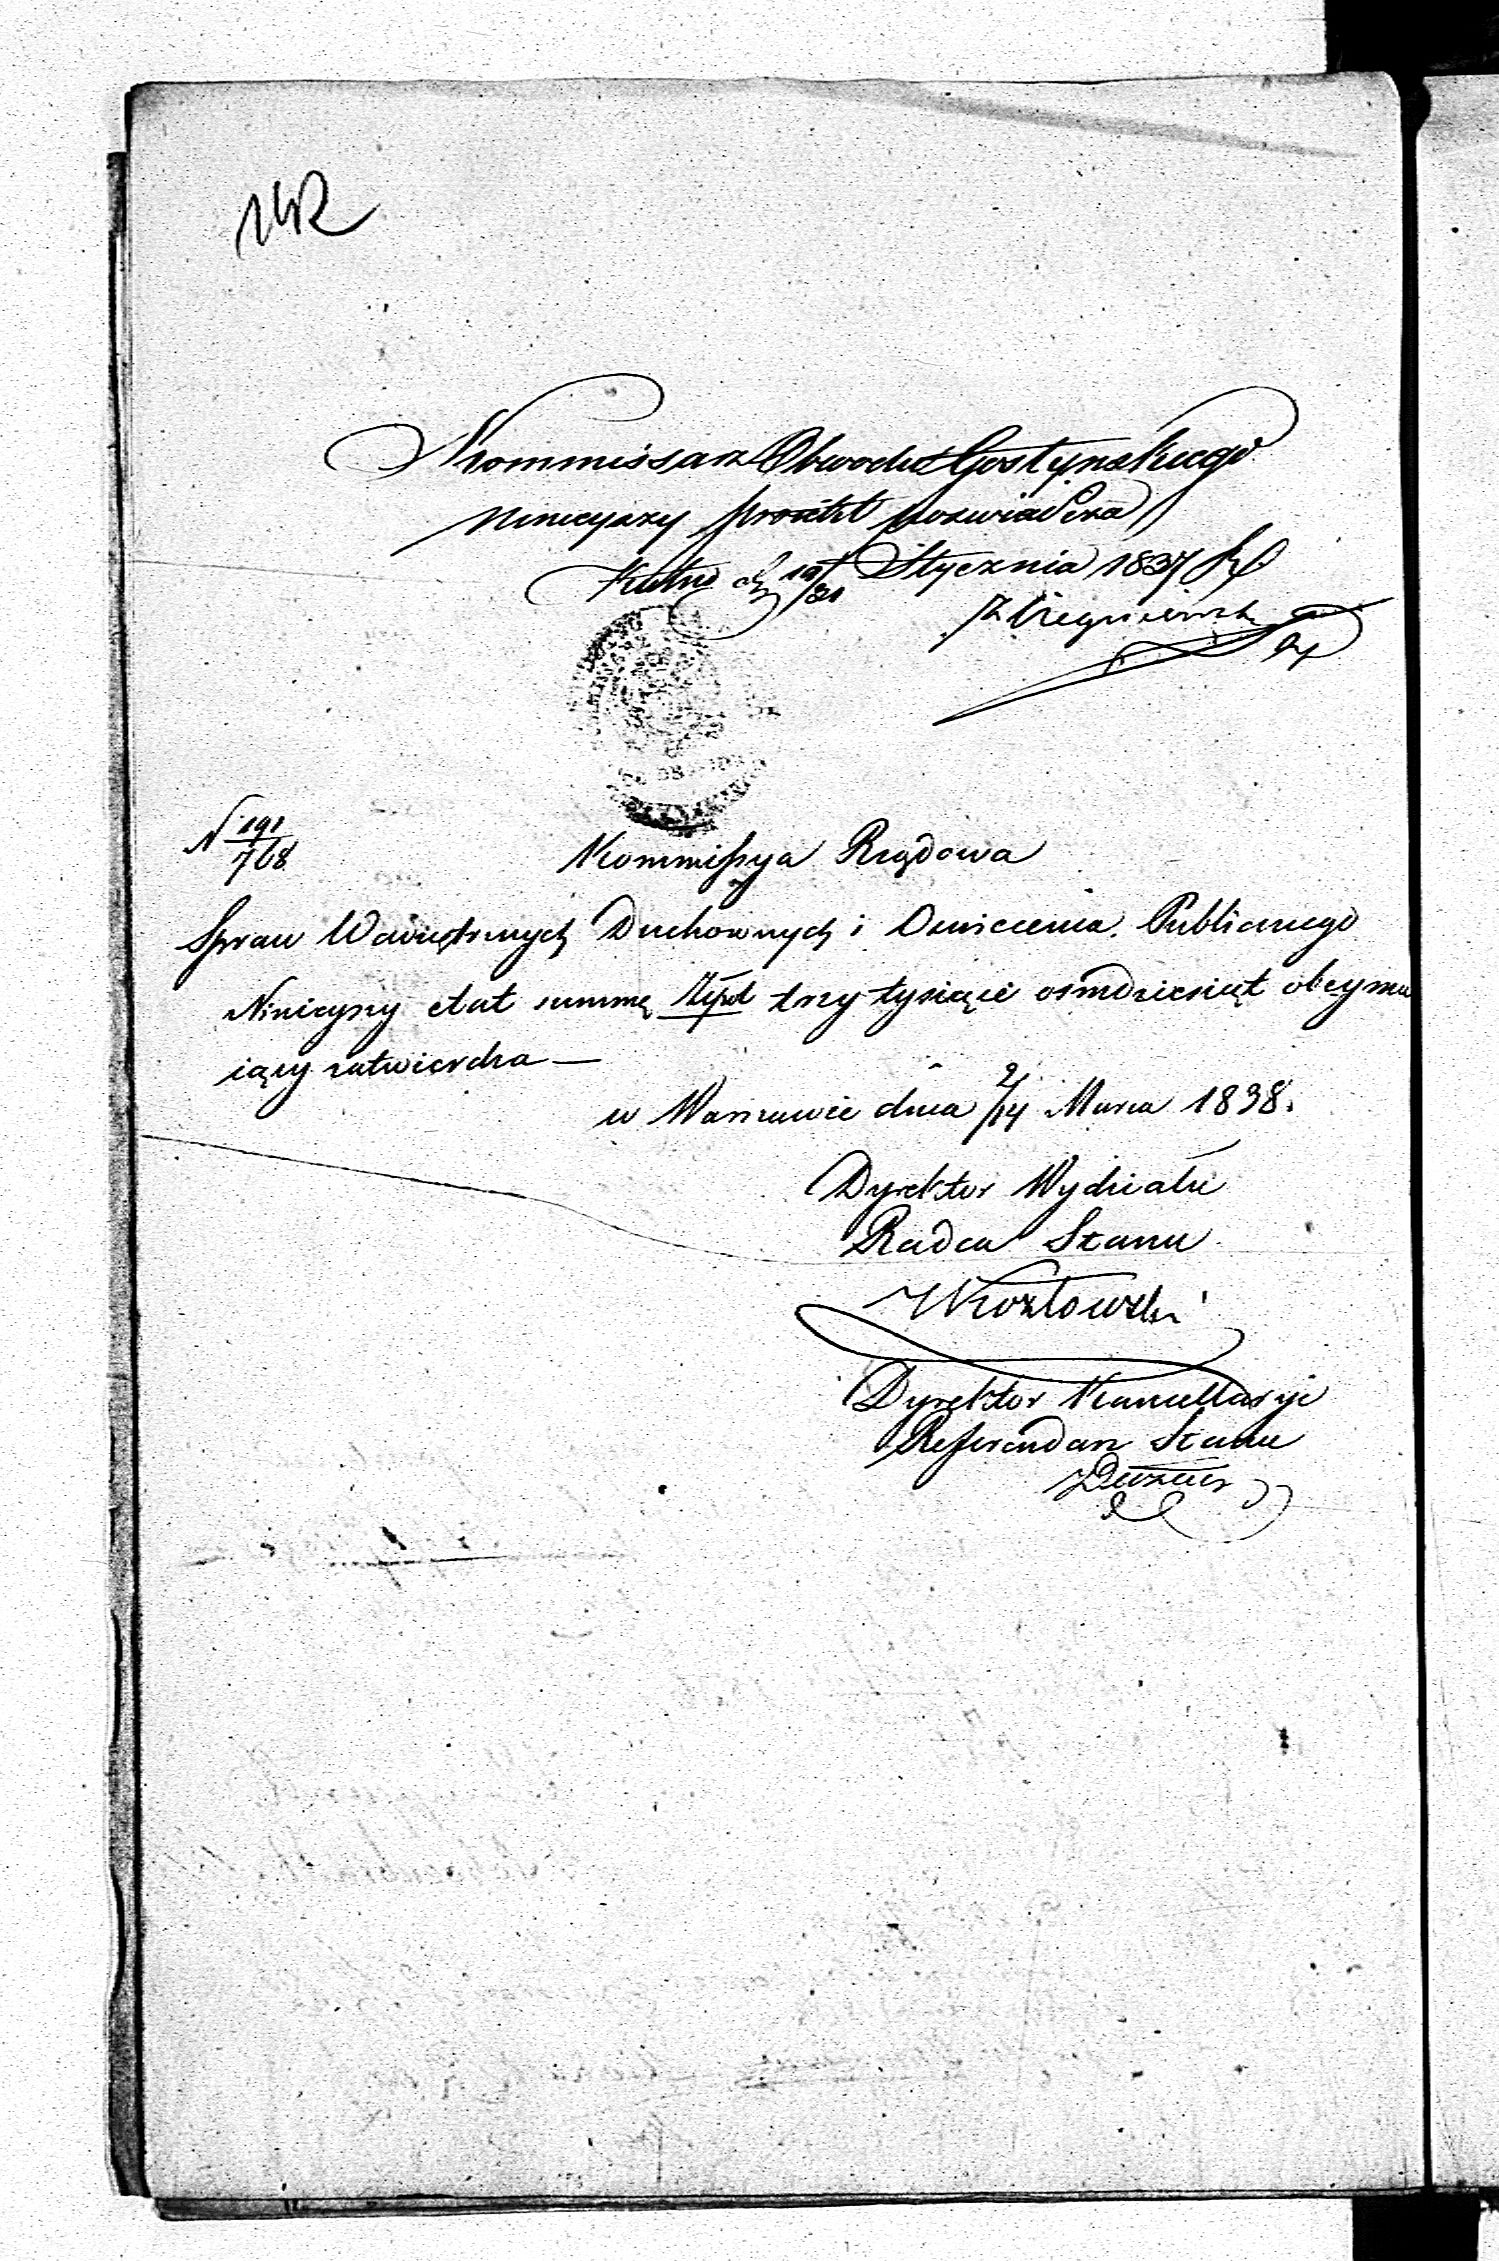 142
Kommissarz Obwodu Gostynskiego
ninieyszy proiekt poswiadcza
Kutno d. 19/31 Stycznia 1837 R.
N 191/768
Kommissya Rządowa
Spraw Wewnętrznych Duchownych i Oswiecenia Publicznego
Ninieyszy etat summę Złpol trzy tysiące osmdziesiąt obeymu
iący zatwierdza —
w Warszawie dnia 2/14 Marca 1838.
Dyrektor Wydziału
Radca Stanu
Kozłowski
Dyrektor Kancellaryi
Referendarz Stanu